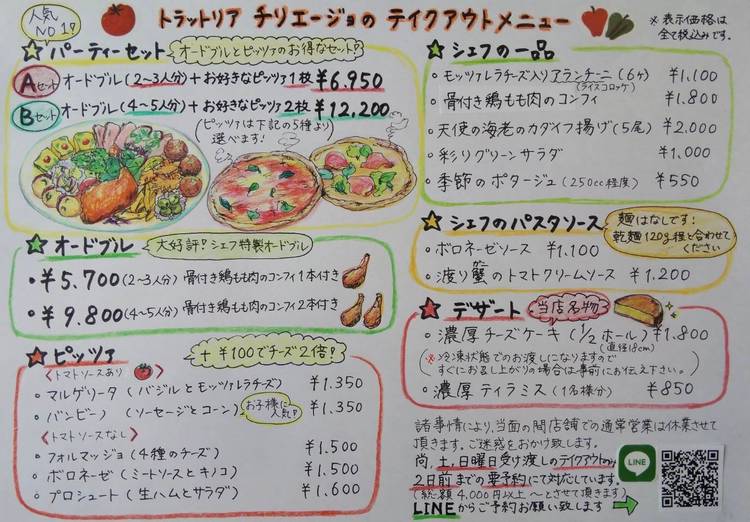 人気
NO 1!
トラットリア チリエージョの テイクアウトメニュー
※表示価格は
全て税込みです。
パーティーセット
オードブルとピッツァのお得なセット!
Aセット オードブル(2〜3人分)+お好きなピッツァ1枚 ¥6.950
Bセット オードブル(4〜5人分)+お好きなピッツァ2枚 ¥12,200
(ピッツァは下記の5種より
選べます!)
オードブル
大好評!シェフ特製オードブル
・¥5.700(2〜3人分) 骨付き鶏もも肉のコンフィ1本付き
・¥9.800(4〜5人分) 骨付き鶏もも肉のコンフィ2本付き
ピッツァ
+¥100でチーズ2倍!
〈トマトソースあり〉
・マルゲリータ(バジルとモッツァレラチーズ) ¥1.350
・バンビーノ(ソーセージとコーン) お子様に人気! ¥1.350
〈トマトソースなし〉
・フォルマッジョ(4種のチーズ) ¥1.500
・ボロネーゼ(ミートソースとキノコ) ¥1.500
・プロシュート(生ハムとサラダ) ¥1.600
シェフの一品
・モッツァレラチーズ入りアランチーニ(6ヶ) ¥1,100
(ライスコロッケ)
・骨付き鶏もも肉のコンフィ ¥1.800
・天使の海老のカダイフ揚げ(5尾) ¥2.000
・彩りグリーンサラダ ¥1,000
・季節のポタージュ(250cc程度) ¥550
シェフのパスタソース
麺はなしです!
乾麺120g程と合わせて
ください
・ボロネーゼソース ¥1.100
・渡り蟹のトマトクリームソース ¥1.200
デザート
当店名物
・濃厚チーズケーキ(1/2ホール) ¥1.800
(直径18cm)
(※冷凍状態でのお渡しになりますので
すぐにお召し上がりの場合は事前にお伝え下さい。)
・濃厚ティラミス(1名様分) ¥850
諸事情により、当面の間店舗での通常営業は休業させて
頂きます。ご迷惑をおかけ致します。
尚、土、日曜日受け渡しのテイクアウトのみ
2日前までの要予約にて対応しています。
(総額4,000円以上〜とさせて頂きます)
LINEからご予約お願い致します
LINE